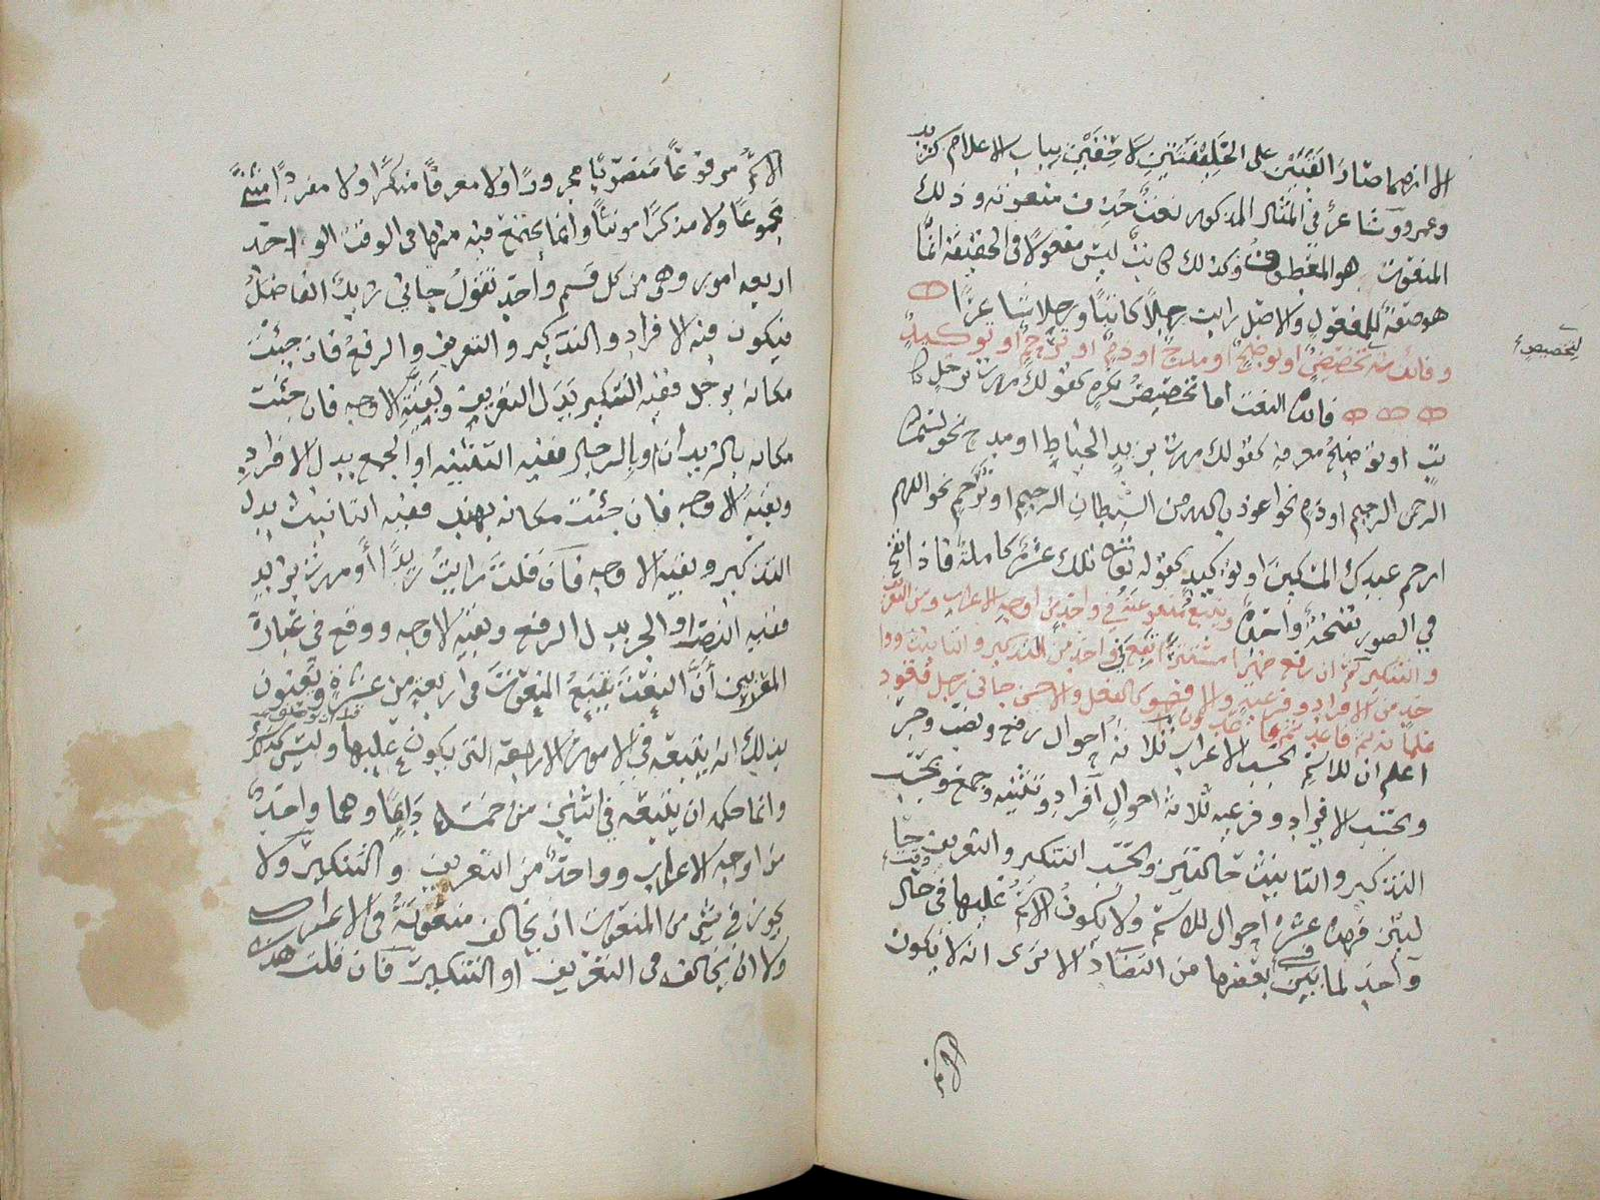 الا انهما صارا لقبين على الخليفتين لاحقين بباب الاعلام كزيد
وعمرو وشاعرٌ في المثال المذكور نعت حذف منعوته وذلك
المنعوت هو المعطوف وكذلك كاتبًا ليس مفعولا في الحقيقة انما
هو صفة للمفعول والاصل رايت رجلا كاتبا ورجلا شاعرا
وفائدته تخصيصٌ او توضيحٌ او مدحٌ او ذمٌ او ترحمٌ او توكيدٌ
لتخصيص
فائدة النعت اما تخصيص نكرة كقولك مررت برجل كا
تب او توضيح معرفة كقولك مررت بزيد الخياط او مدح نحو بسم الله
الرحمن الرحيم او ذم نحو اعوذ بالله من الشيطان الرجيم او ترحم نحو اللهم
ارحم عبدك المسكين او توكيد كقوله تعالى تلك عشرة كاملة فاذا نفخ
في الصور نفخة واحدة ويتبع منعوته في واحد من اوجه الاعراب ومن التعريف
والتنكير ثم ان رفع ضميرا مستترا تبع في واحد من التذكير والتانيث ووا
حد من الافراد وفرعيه والا فهو كالفعل والاحسن جاني رجل قعود
غلمانه ثم قاعد ثم قاعدون
اعلم ان للاسم بحسب الاعراب ثلاثة احوال رفع ونصب وجر
وبحسب الافراد وفرعيه ثلاثة احوال افراد وتثنية وجمع وبحسب
التذكير والتانيث حالتين وبحسب التنكير والتعريف حا
لتين فهذه عشرة احوال للاسم ولا يكون الاسم عليها في حال
واحد لما بين بعضها من التضاد الا ترى انه لا يكون
الاسم مرفوعًا منصوبًا مجرورًا ولا معرفًا منكرًا ولا مفردًا مثنًى
مجموعًا ولا مذكرًا مونثًا وانما يجتمع فيه منها في الوقت الواحد
اربعة امور وهي من كل قسم واحد تقول جاني زيدٌ الفاضلُ
فيكون فيه الافراد والتذكير والتعريف والرفع فان جئت
مكانه برجل ففيه التنكير بدل التعريف وبقية الاوجه فان جئت
مكانه بالزيدان او بالرجال ففيه التثنية او الجمع بدل الافراد
وبقية الاوجه فان جئت مكانه بهند ففيه التانيث بدل
التذكير وبقية الاوجه فان قلت رايت زيدًا او مررت بزيد
ففيه النصب او الجر بدل الرفع وبقية الاوجه ووقع في عبارة
المعربين ان النعت يتبع المنعوت في اربعة من عشرة ويعنون
بذلك انه يتبعه في الامور الاربعة التي يكون عليها وليس كذلك
وانما حكمه ان يتبعه في اثنين من خمسة دايما وهما واحد
من اوجه الاعراب وواحد من التعريف والتنكير ولا
يجوز في شي من المنعوت ان يخالف منعوته في الاعراب
ولا ان يخالفه في التعريف او التنكير فان قلت هذا